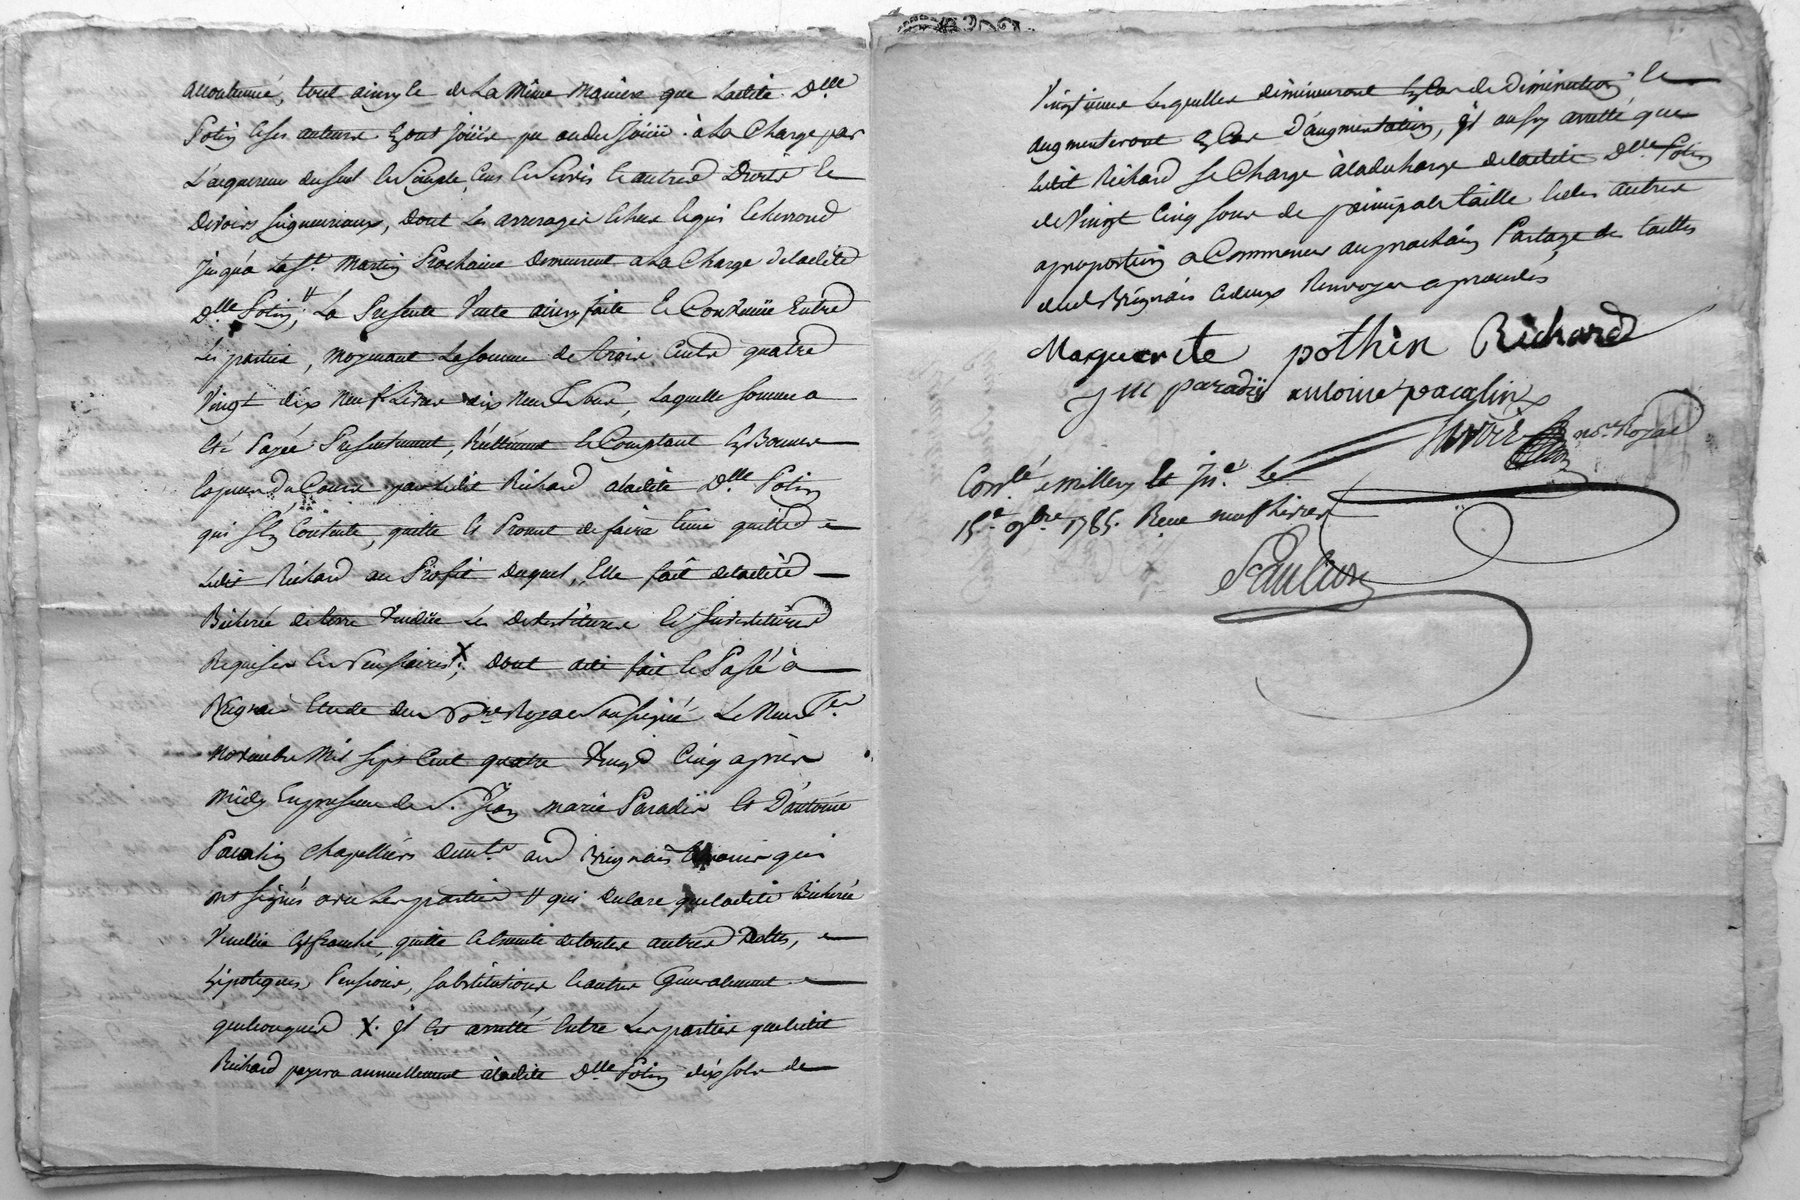 accoutumé, tout ainsy & de la même manière que ladite Dlle
Potin & ses auteurs En ont Joüis pu ou du Joüir à la Charge par
L'acquereur du seul & Simple Cens & Servis & autres Droits &
Devoirs Seigneuriaux, Dont les arrerages Echus & qui Echerront
Jusqu'à la St. Martin Prochaine Demeurent a La Charge de ladite
Dlle Potin, # La Presente Vente ainsy faite & Convenüe Entre
Les parties, moyenant La somme de trois Cents quatre
Vingt dix Neuf Livres dix Neuf sous, Laquelle somme a
Eté Payée Presentement, Réellement & Comptant En Bonnes
Espèces du Cours par Ledit Richard a ladite Dlle Potin
qui s'En Contente, quitte & Promet de faire tenir quitte
Ledit Richard au Profit Duquel, Elle fait de ladite
Bicherée de terre Vendüe Les Devestitures & Investitures
Requises & Necessaires X, Dont acte fait & Passé à
Brignais Etude du Nore Royal Soussigné Le Neuf
Novembre Mil sept Cent quatre Vingt Cinq après
Midy En presence de S. Jean marie Paradis & D'antoine
Pacalin Chapelliers Demts aud Brignais temoins qui
ont signés avec Les parties # qui declare que ladite Bicherée
Vendüe Est franche, quitte & Exempte de toutes autres Dettes,
hipoteques, Pensions, substitutions & autres Generalement
quelconques X. Il Est arretté Entre Les parties que ledit
Richard payera annuellement à ladite Dlle Potin dix sols de
Vingtiemes Lesquelles diminueront En Cas de Diminution &
augmenteront En Cas D'augmentation, Il aussy arretté que
Ledit Richard se Charge à la decharge de ladite Dlle Potin
de Vingt Cinq sous de principale taille & des autres
a proportion a Commencer au prochain Partage des tailles
dud Brignais Ce deux Renvoyes approuvés
Marguerite pothin Richard
J m paradis antoine pacalin
nore Royal
Conlé à millery Et Jné. Le
15e. 9bre 1785. Reçu neuf Livres